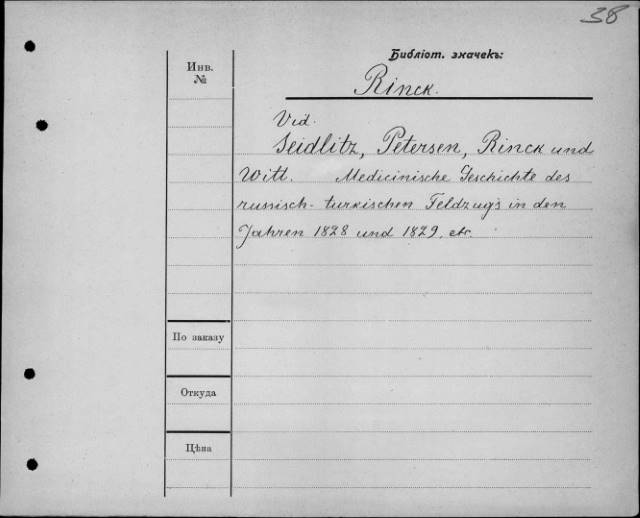 38
Библіот. значекъ:
Инв.
№
Rinck.
Vid.
Seidlitz, Petersen, Rinck und
Witt. Medicinische Geschichte des
russisch-turkischen Feldzug's in den
Jahren 1828 und 1829, etc.
По заказу
Откуда
Цѣна